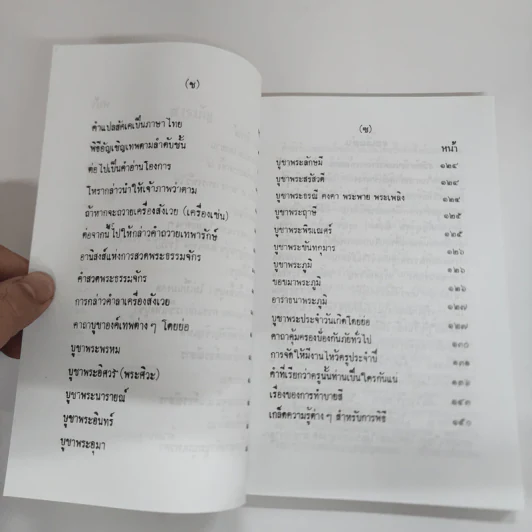 (ช)
คำแปลสัคเคเป็นภาษาไทย
พิธีอัญเชิญเทพตามลำดับชั้น
ต่อไปเป็นคำอ่านโองการ
โหรากล่าวนำให้เจ้าภาพว่าตาม
ถ้าหากจะถวายเครื่องสังเวย (เครื่องเซ่น)
ต่อจากนี้ไปให้กล่าวคำถวายเทพารักษ์
อานิสงส์แห่งการสวดพระธรรมจักร
คำสวดพระธรรมจักร
การกล่าวคำลาเครื่องสังเวย
คาถาบูชาองค์เทพต่าง ๆ โดยย่อ
บูชาพระพรหม
บูชาพระอิศวร (พระศิวะ)
บูชาพระนารายณ์
บูชาพระอินทร์
บูชาพระอุมา
(ซ)
หน้า
บูชาพระลักษมี ๑๒๔
บูชาพระสรัสวดี ๑๒๔
บูชาพระธรณี คงคา พระพาย พระเพลิง ๑๒๔
บูชาพระฤาษี ๑๒๕
บูชาพระพิฆเณศร์ ๑๒๕
บูชาพระขันทกุมาร ๑๒๖
บูชาพระภูมิ ๑๒๖
ขอขมาพระภูมิ ๑๒๖
อาราธนาพระภูมิ ๑๒๗
บูชาพระประจำวันเกิดโดยย่อ ๑๒๗
คาถาคุ้มครองป้องกันภัยทั่วไป ๑๓๐
การจัดให้มีงานไหว้ครูประจำปี ๑๓๑
คำที่เรียกว่าครูนั้นท่านเป็นใครกันแน่ ๑๓๖
เรื่องของการทำบายสี ๑๔๑
เกล็ดความรู้ต่าง ๆ สำหรับการพิธี ๑๕๐